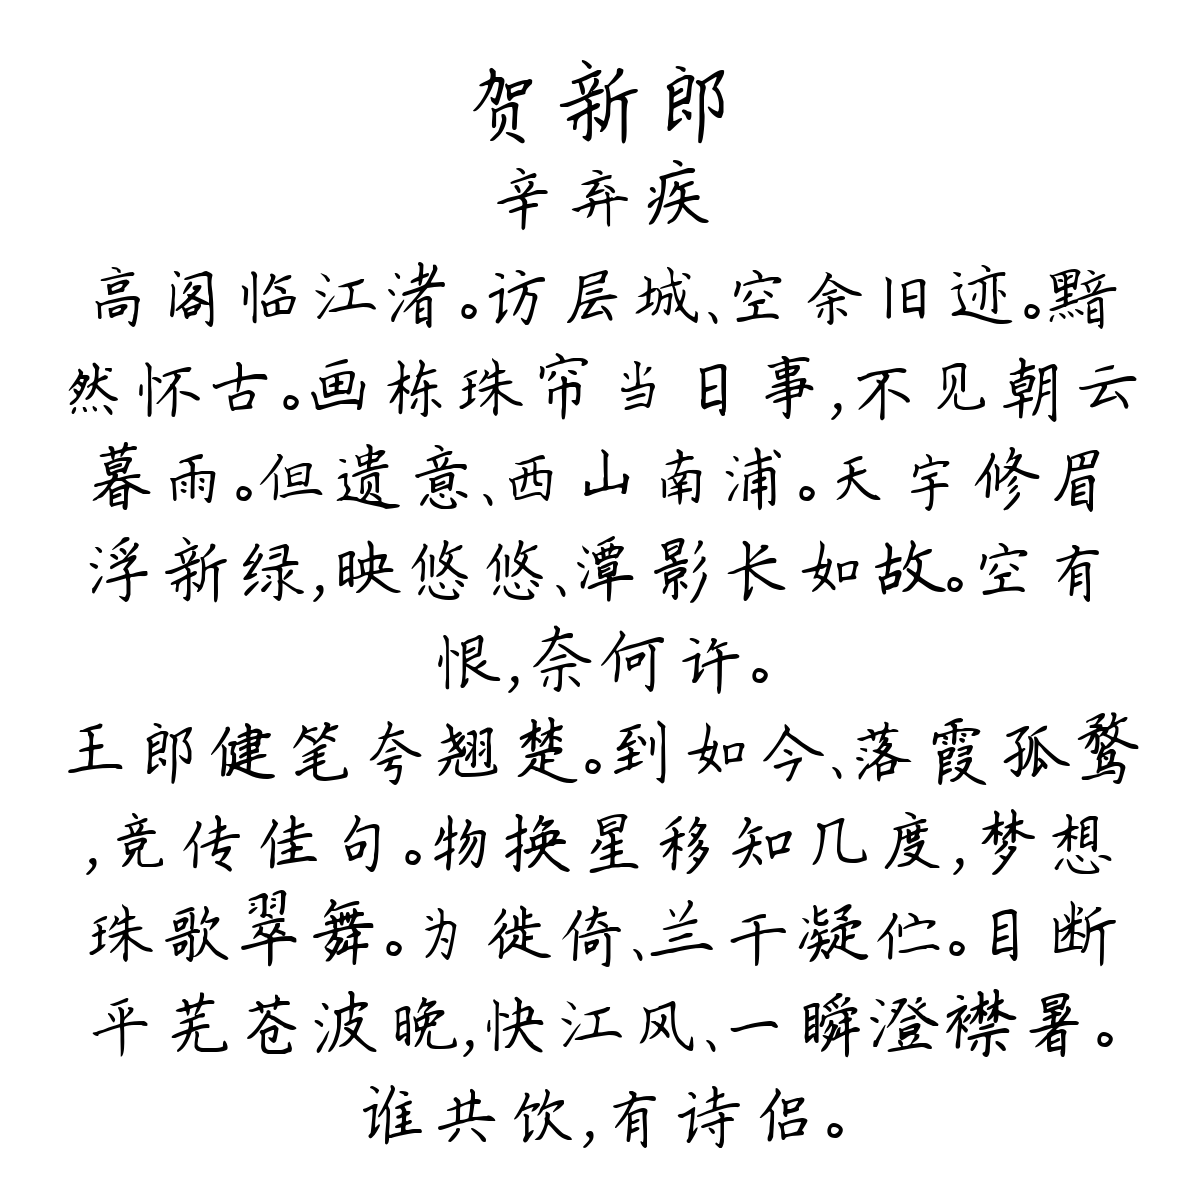 贺新郎
辛弃疾
高阁临江渚。访层城、空余旧迹。黯
然怀古。画栋珠帘当日事,不见朝云
暮雨。但遗意、西山南浦。天宇修眉
浮新绿,映悠悠、潭影长如故。空有
恨,奈何许。
王郎健笔夸翘楚。到如今、落霞孤鹜
,竞传佳句。物换星移知几度,梦想
珠歌翠舞。为徙倚、兰干凝伫。目断
平芜苍波晚,快江风、一瞬澄襟暑。
谁共饮,有诗侣。